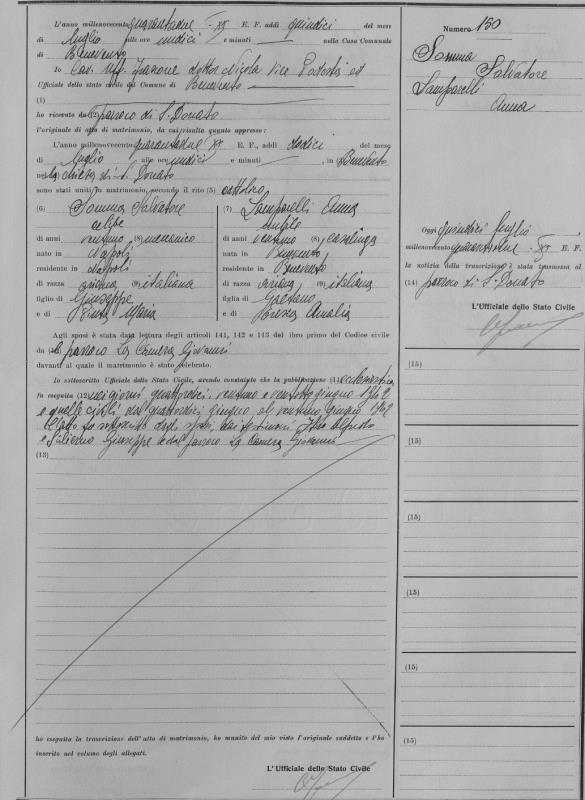 L'anno millenovecento quarantadue XX E. F. addì quindici del mese
di luglio alle ore undici e minuti nella Casa Comunale
di Benevento
Io Cav. Uff. dottor Nicola Vice Podestà ed
Ufficiale dello stato civile del Comune di Benevento
(1)
ho ricevuto da (2) parroco di S. Donato
l'originale di atto di matrimonio, da cui risulta quanto appresso:
L'anno millenovecento quarantadue XX E. F., addì dodici del mese
di luglio, alle ore undici e minuti, in Benevento
nella chiesa di S. Donato
sono stati uniti in matrimonio, secondo il rito (5) cattolico
(6) Somma Salvatore
celibe
di anni ventuno (8) meccanico
nato in Napoli
residente in Napoli
di razza ariana (9) italiana
figlio di Giuseppe
e di Maria
(7) Lamparelli Anna
nubile
di anni (8) casalinga
nata in Benevento
residente in Benevento
di razza ariana (9) italiana
figlia di Gaetano
e di Amalia
Agli sposi è stata data lettura degli articoli 141, 142 e 143 del libro primo del Codice civile
da parroco La Camera Giovanni
davanti al quale il matrimonio è stato celebrato.
Io sottoscritto Ufficiale dello Stato Civile, avendo constatato che la pubblicazione (11) ecclesiastica
fu eseguita (12) nei giorni quattordici, ventuno e ventotto giugno 1942
e quelle civili dal quattordici giugno al ventuno giugno 1942
L'atto fu sottoscritto dagli sposi, dai testimoni Alfredo
e Salierno Giuseppe e dal parroco La Camera Giovanni
(13)
ho eseguita la trascrizione dell'atto di matrimonio, ho munito del mio visto l'originale suddetto e l'ho
inserito nel volume degli allegati.
L'Ufficiale dello Stato Civile
Numero 130
Somma
Salvatore
Lamparelli
Anna
Oggi quindici luglio,
millenovecento quarantadue XX E. F.
la notizia della trascrizione è stata trasmessa al
(14) parroco di S. Donato
L'Ufficiale dello Stato Civile
(15)
(15)
(15)
(15)
(15)
(15)